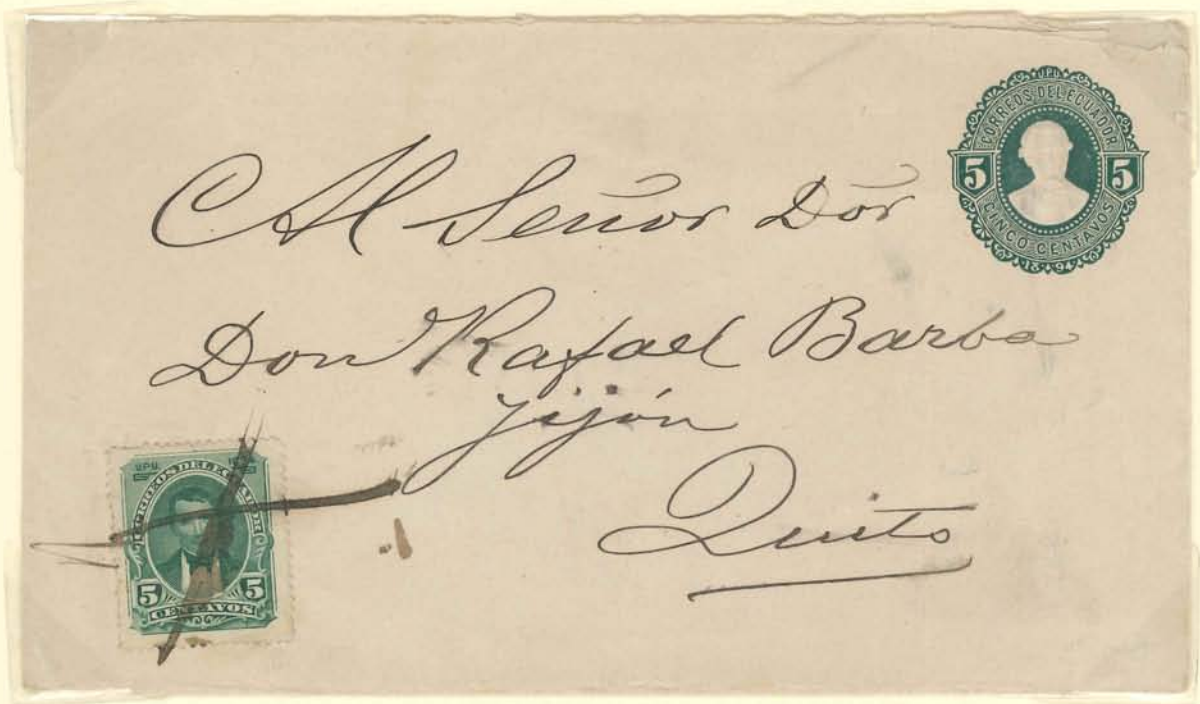 U.P.U.
CORREOS DEL ECUADOR
5 5
CINCO CENTAVOS
1894
Al Señor Dor
Don Rafael Barba
Jijón
Quito
U.P.U.
CORREOS DEL ECUADOR
5 5
CENTAVOS